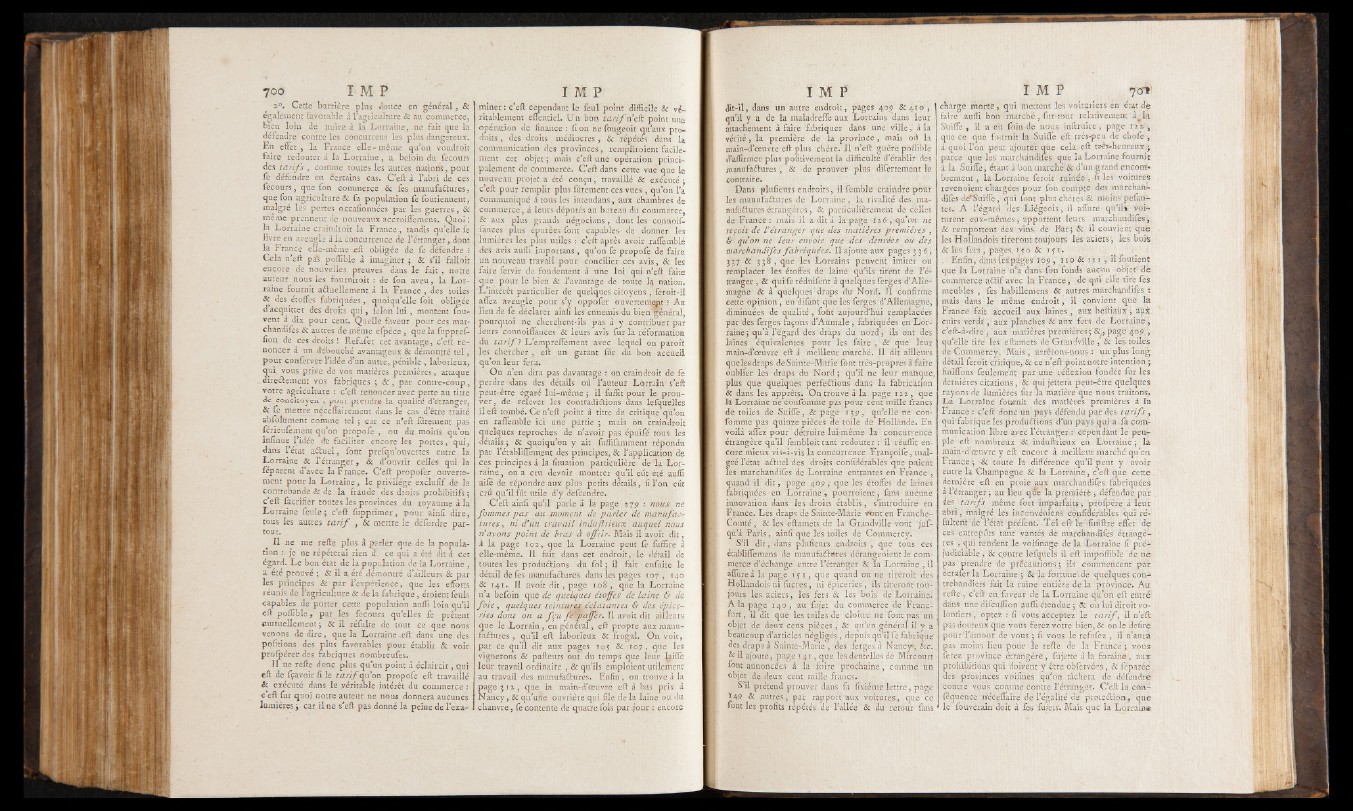 700 IMP
2°. Cette barrière plus douce en général, &
également favorable à l'agriculture & au commerce,
bien loin de nuire à la Lorraine, ne fait que la
défendre contre les concurrens les plus dangereux.
En effet, la France elle-même qu'on voudroit
faire redouter à la Lorraine, a beſoin du ſecours
des tarifs, comme toutes les autres nations, pour
ſe défendre en certains cas. C'eſt à l'abri de ces
ſecours, que ſon commerce & ſes manufactures,
que ſon agriculture & ſa population ſe ſoutiennent,
malgré les pertes occaſionnées par les guerres, &
même prennent de nouveaux accroiſſemens. Quoi!
la Lorraine craindroit la France, tandis qu'elle ſe
livre en aveugle à la concurrence de l'étranger, dont
la France elle-même eſt obligée de ſe défendre!
Cela n'eſt pas poſſible à imaginer; & s'il falloit
encore de nouvelles preuves dans le fait, notre
auteur nous les fourniroit: de ſon aveu, la Lor-
raine fournit actuellement à la France, des toiles
& des étoffes fabriquées, quoiqu'elle ſoit obligée
d'acquitter des droits qui, ſelon lui, montent ſou-
vent à dix pour cent. Quelle faveur pour ces mar-
chandiſes & autres de même eſpéce, que la ſuppreſ-
ſion de ces droits! Refuſer cet avantage, c'eſt re-
noncer à un débouché avantageux & démontré tel,
pour conſerver l'idée d'un autre, pénible, laborieux,
qui vous prive de vos matières premières, attaque
directement vos fabriques; &, par contre-coup,
votre agriculture: c'eſt renoncer avec perte au titre
de concitoyen, pour prendre la qualité d'étranger,
& ſe mettre néceſſairement dans le cas d'être traité
abſolument comme tel; car ce n'eſt ſûrement pas
ſérieuſement qu'on propoſe, ou du moins qu'on
inſinue l'idée de faciliter encore les portes, qui,
dans l'état actuel, ſont preſqu'ouvertes entre la
Lorraine & l'étranger, & d'ouvrir celles qui la
ſéparent d'avec la France. C'eſt propoſer ouverte-
ment pour la Lorraine, le privilége excluſif de la
contrebande & de la fraude des droits prohibitifs;
c'eſt ſacrifier toutes les provinces du royaume à la
Lorraine ſeule; c'eſt ſupprimer, pour ainſi dire,
tous les autres tarif, & mettre le déſordre par-
tout.
Il ne me reſte plus à parler que de la popula-
tion: je ne répéterai rien de ce qui a été dit à cet
égard. Le bon état de la population de la Lorraine,
a été prouvé; & il a été démontré d'ailleurs & par
les principes & par l'expérience, que les efforts
réunis de l'agriculture & de la fabrique, étoient ſeuls
capables de porter cette population auſſi loin qu'il
eſt poſſible, par les ſecours qu'elles ſe prêtent
mutuellement; & il réſulte de tout ce que nous
venons de dire, que la Lorraine eſt dans une des
poſitions des plus favorables pour établir & voir
proſpérer des fabriques nombreuſes.
Il ne reſte donc plus qu'un point à éclaircir, qui
eſt de ſçavoir ſi le tarif qu'on propoſe eſt travaillé
& exécuté dans le véritable intérêt du commerce:
c'eſt ſur quoi notre auteur ne nous donnera aucunes
lumières; car il ne s'eſt pas donné la peine de l'exa-
IMP
miner: c'eſt cependant le ſeul point difficile & vé-
ritablement eſſentiel. Un bon tarif n'eſt point une
opération de finance: ſi on ne ſongeoit qu'aux pro-
duits, des droits médiocres, & répétés dans la
communication des provinces, rempliroient facile-
ment cet objet; mais c'eſt une opération princi-
palement de commerce. C'eſt dans cette vue que le
nouveau projet a été conçu, travaillé & exécuté;
c'eſt pour remplir plus ſûrement ces vues, qu'on l'a
communiqué à tous les intendans, aux chambres de
commerce, à leurs députés au bureau du commerce,
& aux plus grands négocians, dont les connoiſ-
ſances plus épurées ſont capables de donner les
lumières les plus utiles: c'eſt après avoir raſſemblé
des avis auſſi importans, qu'on ſe propoſe de faire
un nouveau travail pour concilier ces avis, & les
faire ſervir de fondement à une loi qui n'eſt faite
que pour le bien & l'avantage de toute la nation.
L'intérêt particulier de quelques citoyens, ſeroit-il
aſſez aveugle pour s'y oppoſer ouvertement? Au
lieu de ſe déclarer ainſi les ennemis du bien général,
pourquoi ne cherchent-ils pas à y contribuer par
leurs connoiſſances & leurs avis ſur la réformation
du tarif? L'empreſſement avec lequel on paroît
les chercher, eſt un garant ſûr du bon accueil
qu'on leur fera.
On n'en dira pas davantage: on craindroit de ſe
perdre dans des détails où l'auteur Lorrain s'eſt
peut-être égaré lui-même; il ſuffit pour le prou-
ver, de relever les contradictions dans leſquelles
il eſt tombé. Ce n'eſt point à titre de critique qu'on
en raſſemble ici une partie; mais on craindroit
quelques reproches de n'avoir pas épuiſé tous les
détails; & quoiqu'on y ait ſuffiſamment répondu
par l'établiſſement des principes, & l'application de
ces principes à la ſituation particulière de la Lor-
raine, on a cru devoir montrer qu'il eût été auſſi
aiſé de répondre aux plus petits détails, ſi l'on eût
crû qu'il fût utile d'y deſcendre.
C'eſt ainſi qu'il parle à la page 279: nous ne
ſommes pas au moment de parler de manufac-
tures, ni d'un travail induſtrieux auquel nous
n'avons point de bras à offrir. Mais il avoit dit,
à la page 102, que la Lorraine peut ſe ſuffire à
elle-même. Il fait dans cet endroit, le détail de
toutes les productions du ſol; il fait enſuite le
détail de ſes manufactures dans les pages 107, 140
& 141. Il avoit dit, page 108, que la Lorraine
n'a beſoin que de quelques étoffes de laine & de
ſoie, quelques teintures éclatantes & des épice-
ries dont on a ſçu ſe paſſer. Il avoit dit ailleurs
que le Lorrain, en général, eſt propre aux manu-
factures, qu'il eſt laborieux & frugal. On voit,
par ce qu'il dit aux pages 105 & 107, que les
vignerons & paſteurs ont du temps que leur laiſſe
leur travail ordinaire, & qu'ils emploient utilement
au travail des manufactures. Enfin, on trouve à la
page 312, que la main-d'œuvre eſt à bas prix à
Nancy, & qu'une ouvrière qui file de la laine ou du
chanvre, ſe contente de quatre ſols par jour: encore
IMP
dit-il, dans un autre endroit, pages 409 & 410,
qu'il y a de la maladreſſe aux Lorrains dans leur
attachement à faire fabriquer dans une ville, à la
vérité, la première de la province, mais où la
main-d'œuvre eſt plus chère. Il n'eſt guère poſſible
d'affirmer plus poſitivement la difficulté d'établir des
manufactures, & de prouver plus diſertement le
contraire.
Dans pluſieurs endroits, il ſemble craindre pour
les manufactures de Lorraine, la rivalité des ma-
nufactures étrangères, & particulièrement de celles
de France: mais il a dit à la page 126, qu'on ne
reçoit de l'étranger que des matières premières,
& qu'on ne leur envoie que des denrées ou des
marchandiſes fabriquées. Il ajoute aux pages 336,
337 & 338, que les Lorrains peuvent imiter ou
remplacer les étoffes de laine qu'ils tirent de l'é-
tranger, & qui ſe réduiſent à quelques ſerges d'Alle-
magne & à quelques draps du Nord. Il confirme
cette opinion, en diſant que les ſerges d'Allemagne,
diminuées de qualité, ſont aujourd'hui remplacées
par des ſerges façons d'Aumale, fabriquées en Lor-
raine; qu'à l'égard des draps du nord, ils ont des
laines équivalentes pour les faire, & que leur
main-d'œuvre eſt à meilleur marché. Il dit ailleurs
que les draps de Sainte-Marie ſont très-propres à faire
oublier les draps de Nord; qu'il ne leur manque,
plus que quelques perfections dans la fabrication
& dans les apprêts. On trouve à la page 122, que
la Lorraine ne conſomme pas pour cent mille francs
de toiles de Suiſſe, & page 139, qu'elle ne con-
ſomme pas quinze piéces de toile de Hollande. En
voilà aſſez pour détruire lui-même la concurrence
étrangère qu'il ſembloit tant redouter: il réuſſit en-
core mieux vis-à-vis la concurrence Françoiſe, mal-
gré l'état actuel des droits conſidérables que paient
les marchandiſes de Lorraine entrantes en France,
quand il dit, page 409; que les étoffes de laines
fabriquées en Lorraine, pourroient, ſans aucune
innovation dans les droits établis, s'introduire en
France. Les draps de Sainte-Marie vont en Franche-
Comté, & les eſtamets de la Grandville vont juſ-
qu'à Paris, ainſi que les toiles de Commercy.
S'il dit, dans pluſieurs endroits, que tous ces
établiſſemens de manufactures dérangeroient le com-
merce d'échange entre l'étranger & la Lorraine, il
aſſure à la page 151, que quand on ne tireroit des
Hollandois ni ſucres, ni épiceries, ils tireront tou-
jours les aciers, les fers & les bois de Lorraine.
A la page 140, au ſujet du commerce de Franc-
fort, il dit que les toiles de cloître ne font pas un
objet de deux cens piéces, & qu'en général il y a
beaucoup d'articles négligés, depuis qu'il ſe fabrique
des draps à Sainte-Marie, des ſerges à Nancy, &c.
& il ajoute, page 141, que les dentelles de Mirecourt
ſont annoncées à la foire prochaine, comme un
objet de deux cent mille francs.
S'il prétend prouver dans ſa ſixième lettre, page
149 & autres, par rapport aux voitures, que ce
ſont les profits répétés de l'allée & du retour ſans
IMP 701
charge morte, qui mettent les voituriers en état de
faire auſſi bon marché, ſur-tout relativement à la
Suiſſe, il a eu ſoin de nous inſtruire, page 122,
que ce que fournit la Suiſſe eſt très-peu de choſe,
à quoi l'on peut ajouter que cela eſt très-heureux;
parce que les marchandiſes que la Lorraine fournit
à la Suiſſe, étant à bon marché & d'un grand encom-
brement, la Lorraine ſeroit ruinée, ſi les voitures
revenoient chargées pour ſon compte des marchan-
diſes de Suiſſe, qui ſont plus chères & moins peſan-
tes. A l'égard des Liégeois, il aſſure qu'ils voi-
turent eux-mêmes, apportent leurs marchandiſes,
& remportent des vins de Bar; & il convient que
les Hollandois tireront toujours les aciers, les bois
& les fers, pages 150 & 151.
Enfin, dans les pages 109, 110 & 111, il ſoutient
que la Lorraine n'a dans ſon fonds aucun objet de
commerce actif avec la France, de qui elle tire ſes
meubles, ſes habillemens & autres marchandiſes:
mais dans le même endroit, il convient que la
France fait accueil aux laines, aux beſtiaux, aux
cuirs verds, aux planches & aux fers de Lorraine,
c'eſt-à-dire, aux matières premières; &, page 409,
qu'elle tire les eſtamets de Grandville, & les toiles
de Commercy. Mais, arrêtons-nous: un plus long
détail ſeroit critique, & ce n'eſt point notre intention;
finiſſons ſeulement par une réflexion fondée ſur les
dernières citations, & qui jettera peut-être quelques
rayons de lumières ſur la matière que nous traitons.
La Lorraine fournit des matières premières à la
France: c'eſt donc un pays défendu par des tarifs,
qui fabrique les productions d'un pays qui a ſa com-
munication libre avec l'étranger: cependant le peu-
ple eſt nombreux & induſtrieux en Lorraine; la
main-d'œuvre y eſt encore à meilleur marché qu'en
France; & toute la différence qu'il peut y avoir
entre la Champagne & la Lorraine, c'eſt que cette
dernière eſt en proie aux marchandiſes fabriquées
à l'étranger; au lieu que la première, défendue par
des tarifs même fort imparfaits, proſpère à leur
abri, malgré les inconvéniens conſidérables qui ré-
ſultent de l'état préſent. Tel eſt le ſiniſtre effet de
ces entrepôts tant vantés de marchandiſes étrangè-
res, qui rendent le voiſinage de la Lorraine ſi pré-
judiciable, & contre leſquels il eſt impoſſible de ne
pas prendre de précautions; ils commencent par
écraſer la Lorraine; & la fortune de quelques con-
trebandiers fait la ruine entière de la province. Au
reſte, c'eſt en faveur de la Lorraine qu'on eſt entré
dans une diſcuſſion auſſi étendue; & on lui diroit vo-
lontiers, optez: ſi vous acceptez le tarif, il n'eſt
pas douteux que vous ferez votre bien, & on le deſire
pour l'amour de vous; ſi vous le refuſez, il n'aura
pas moins lieu pour le reſte de la France; vous
ſerez province étrangère, ſujette à ſa foraine, aux
prohibitions qui doivent y être obſervées, & ſéparée
des provinces voiſines qu'on tâchera de défendre
contre vous comme contre l'étranger. C'eſt la con-
ſéquence néceſſaire de l'égalité de protection, que
le ſouverain doit à ſes ſujets. Mais que la Lorraine